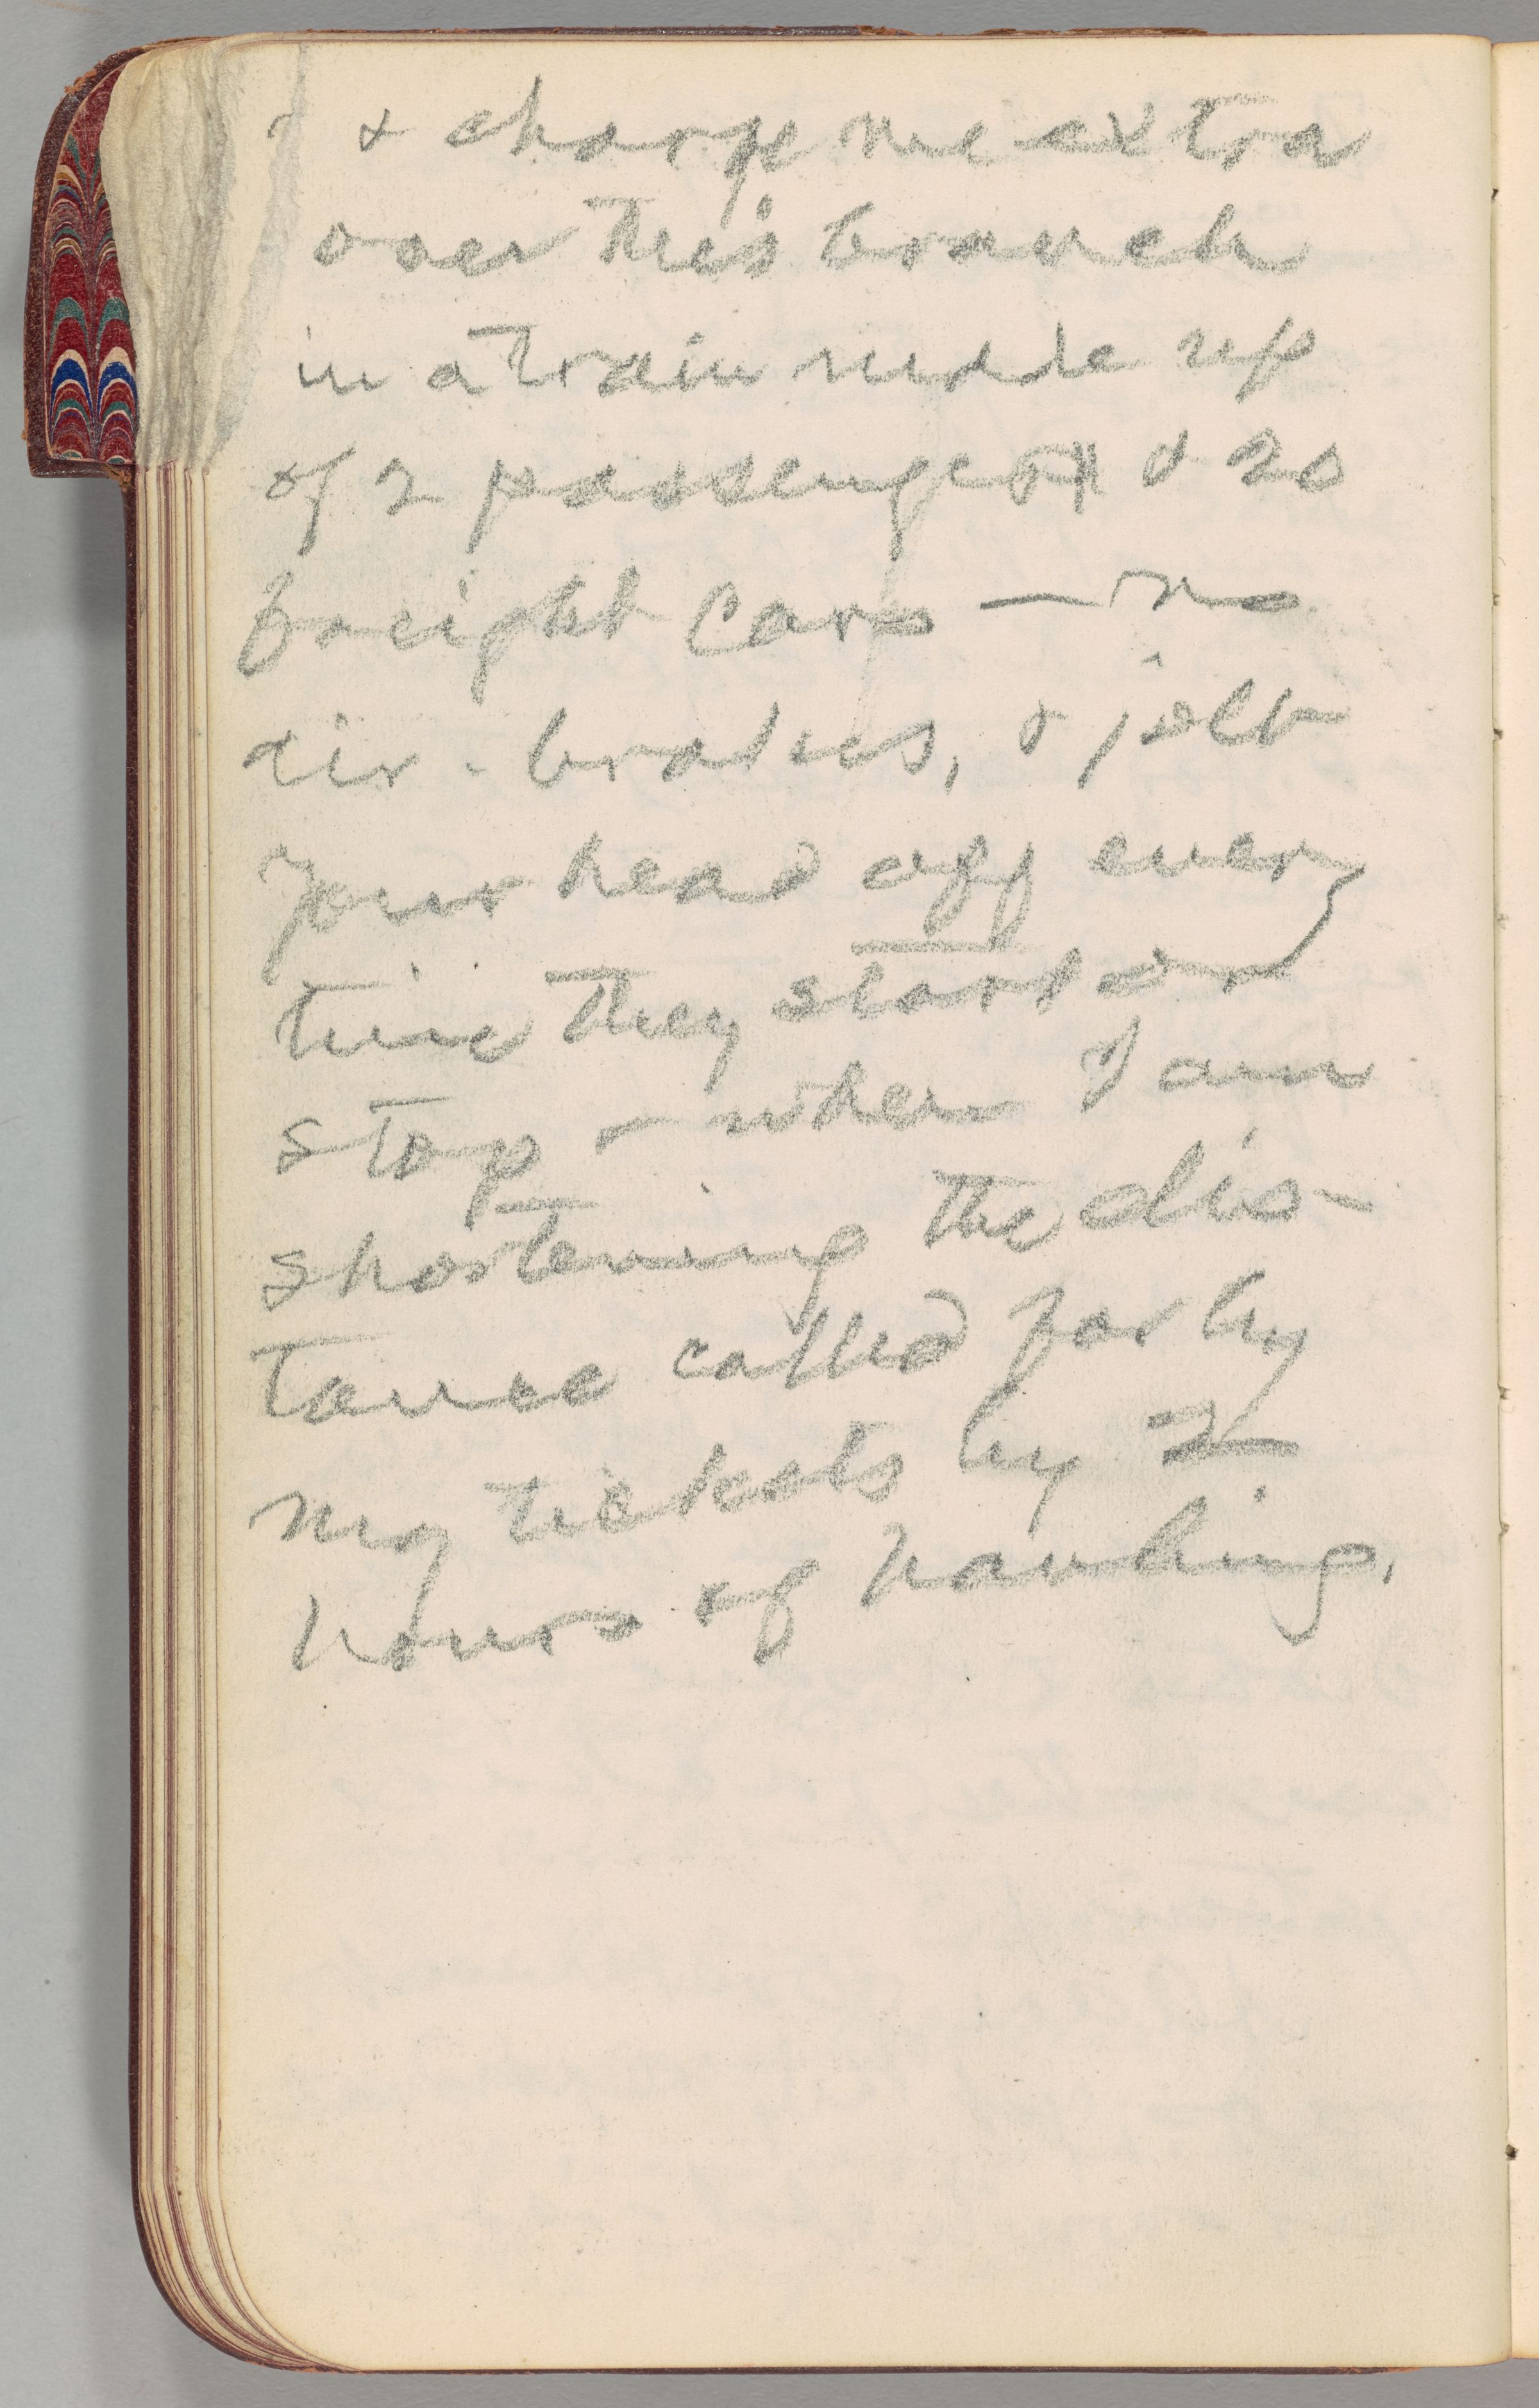 & charge me extra
over this branch
in a train made up
of 2 passenger & 20
freight cars — no
air-brakes, & jolt
your head off every
time they start or
stop — when I am
shortening the dis-
tance called for by
my tickets by 2
hours of hauling.